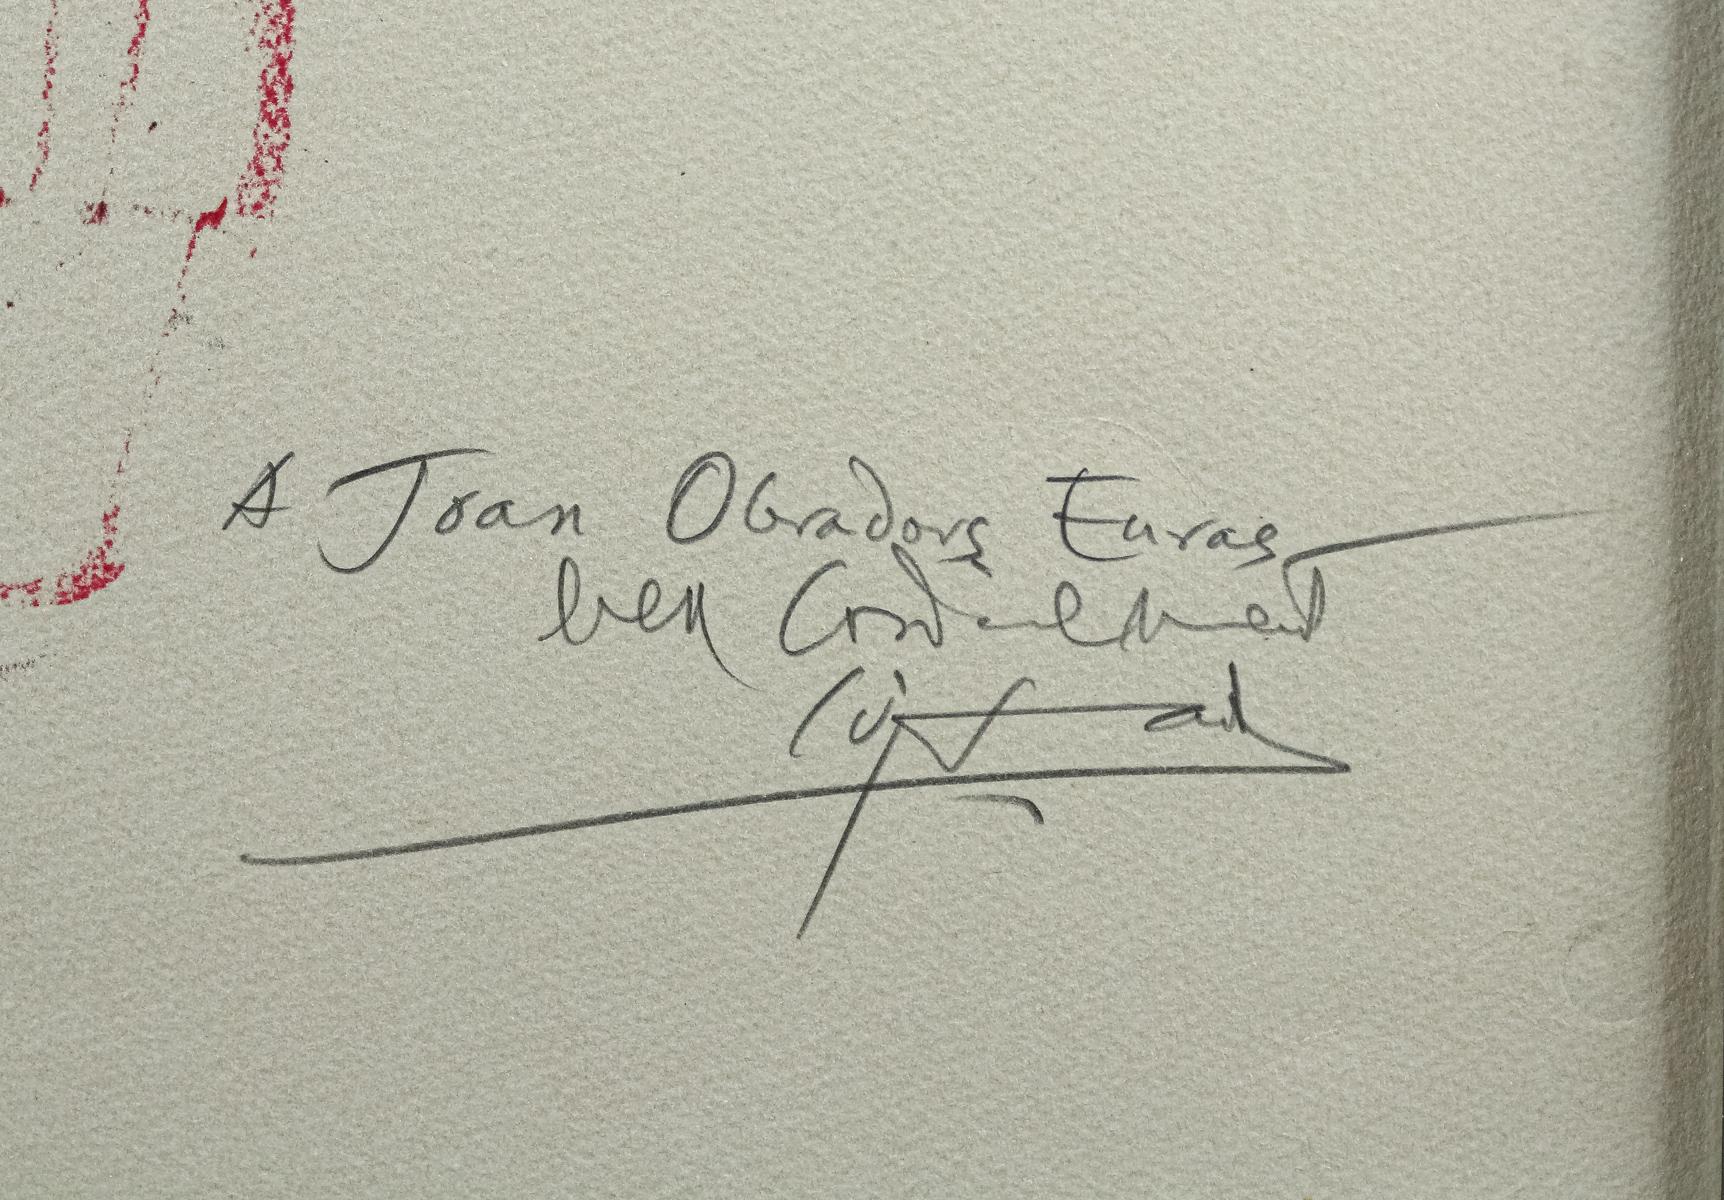 A Joan Obradors Euras
ben Cordialment